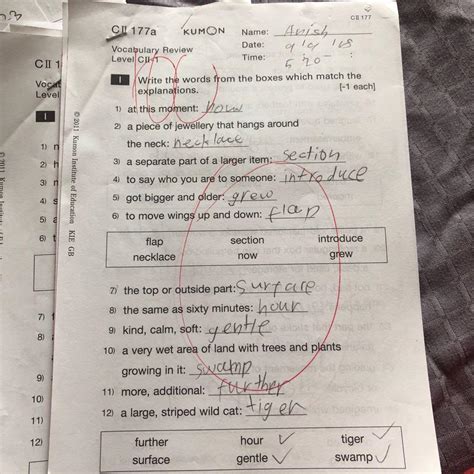 CII 177
CII 177a KUMON Name: Anish
Vocabulary Review Date:
Level CII-1 Time:
1 Write the words from the boxes which match the
explanations. [-1 each]
1) at this moment: now
2) a piece of jewellery that hangs around
the neck: necklace
3) a separate part of a larger item: section
4) to say who you are to someone: introduce
5) got bigger and older: grew
6) to move wings up and down: flap
flap section introduce
necklace now grew
7) the top or outside part: surface
8) the same as sixty minutes: hour
9) kind, calm, soft: gentle
10) a very wet area of land with trees and plants
growing in it: swamp
11) more, additional: further
12) a large, striped wild cat: tiger
further hour tiger
surface gentle swamp
© 2011 Kumon Institute of Education KIE GB
CII 1
Vocabu
Level
1
1) n
2) h
3) n
4) s
5) a
6) t
7)
8)
9)
10)
11)
12)